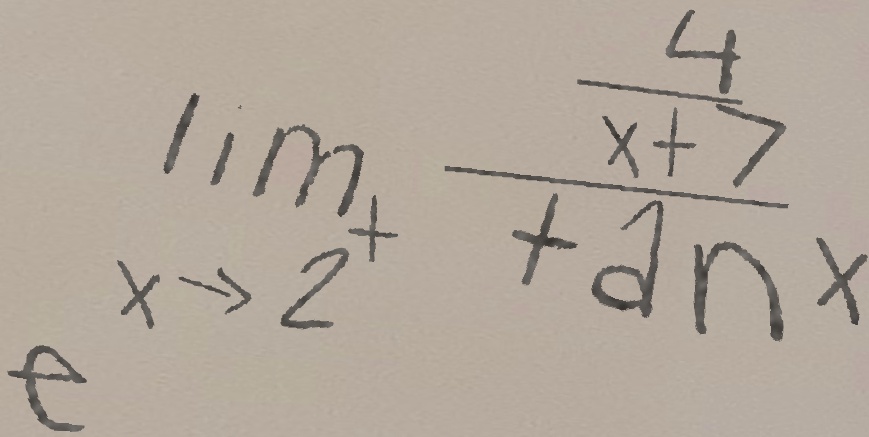 e^{\lim_{x \to 2^+} \frac{\frac{4}{x+7}}{\tan x}}